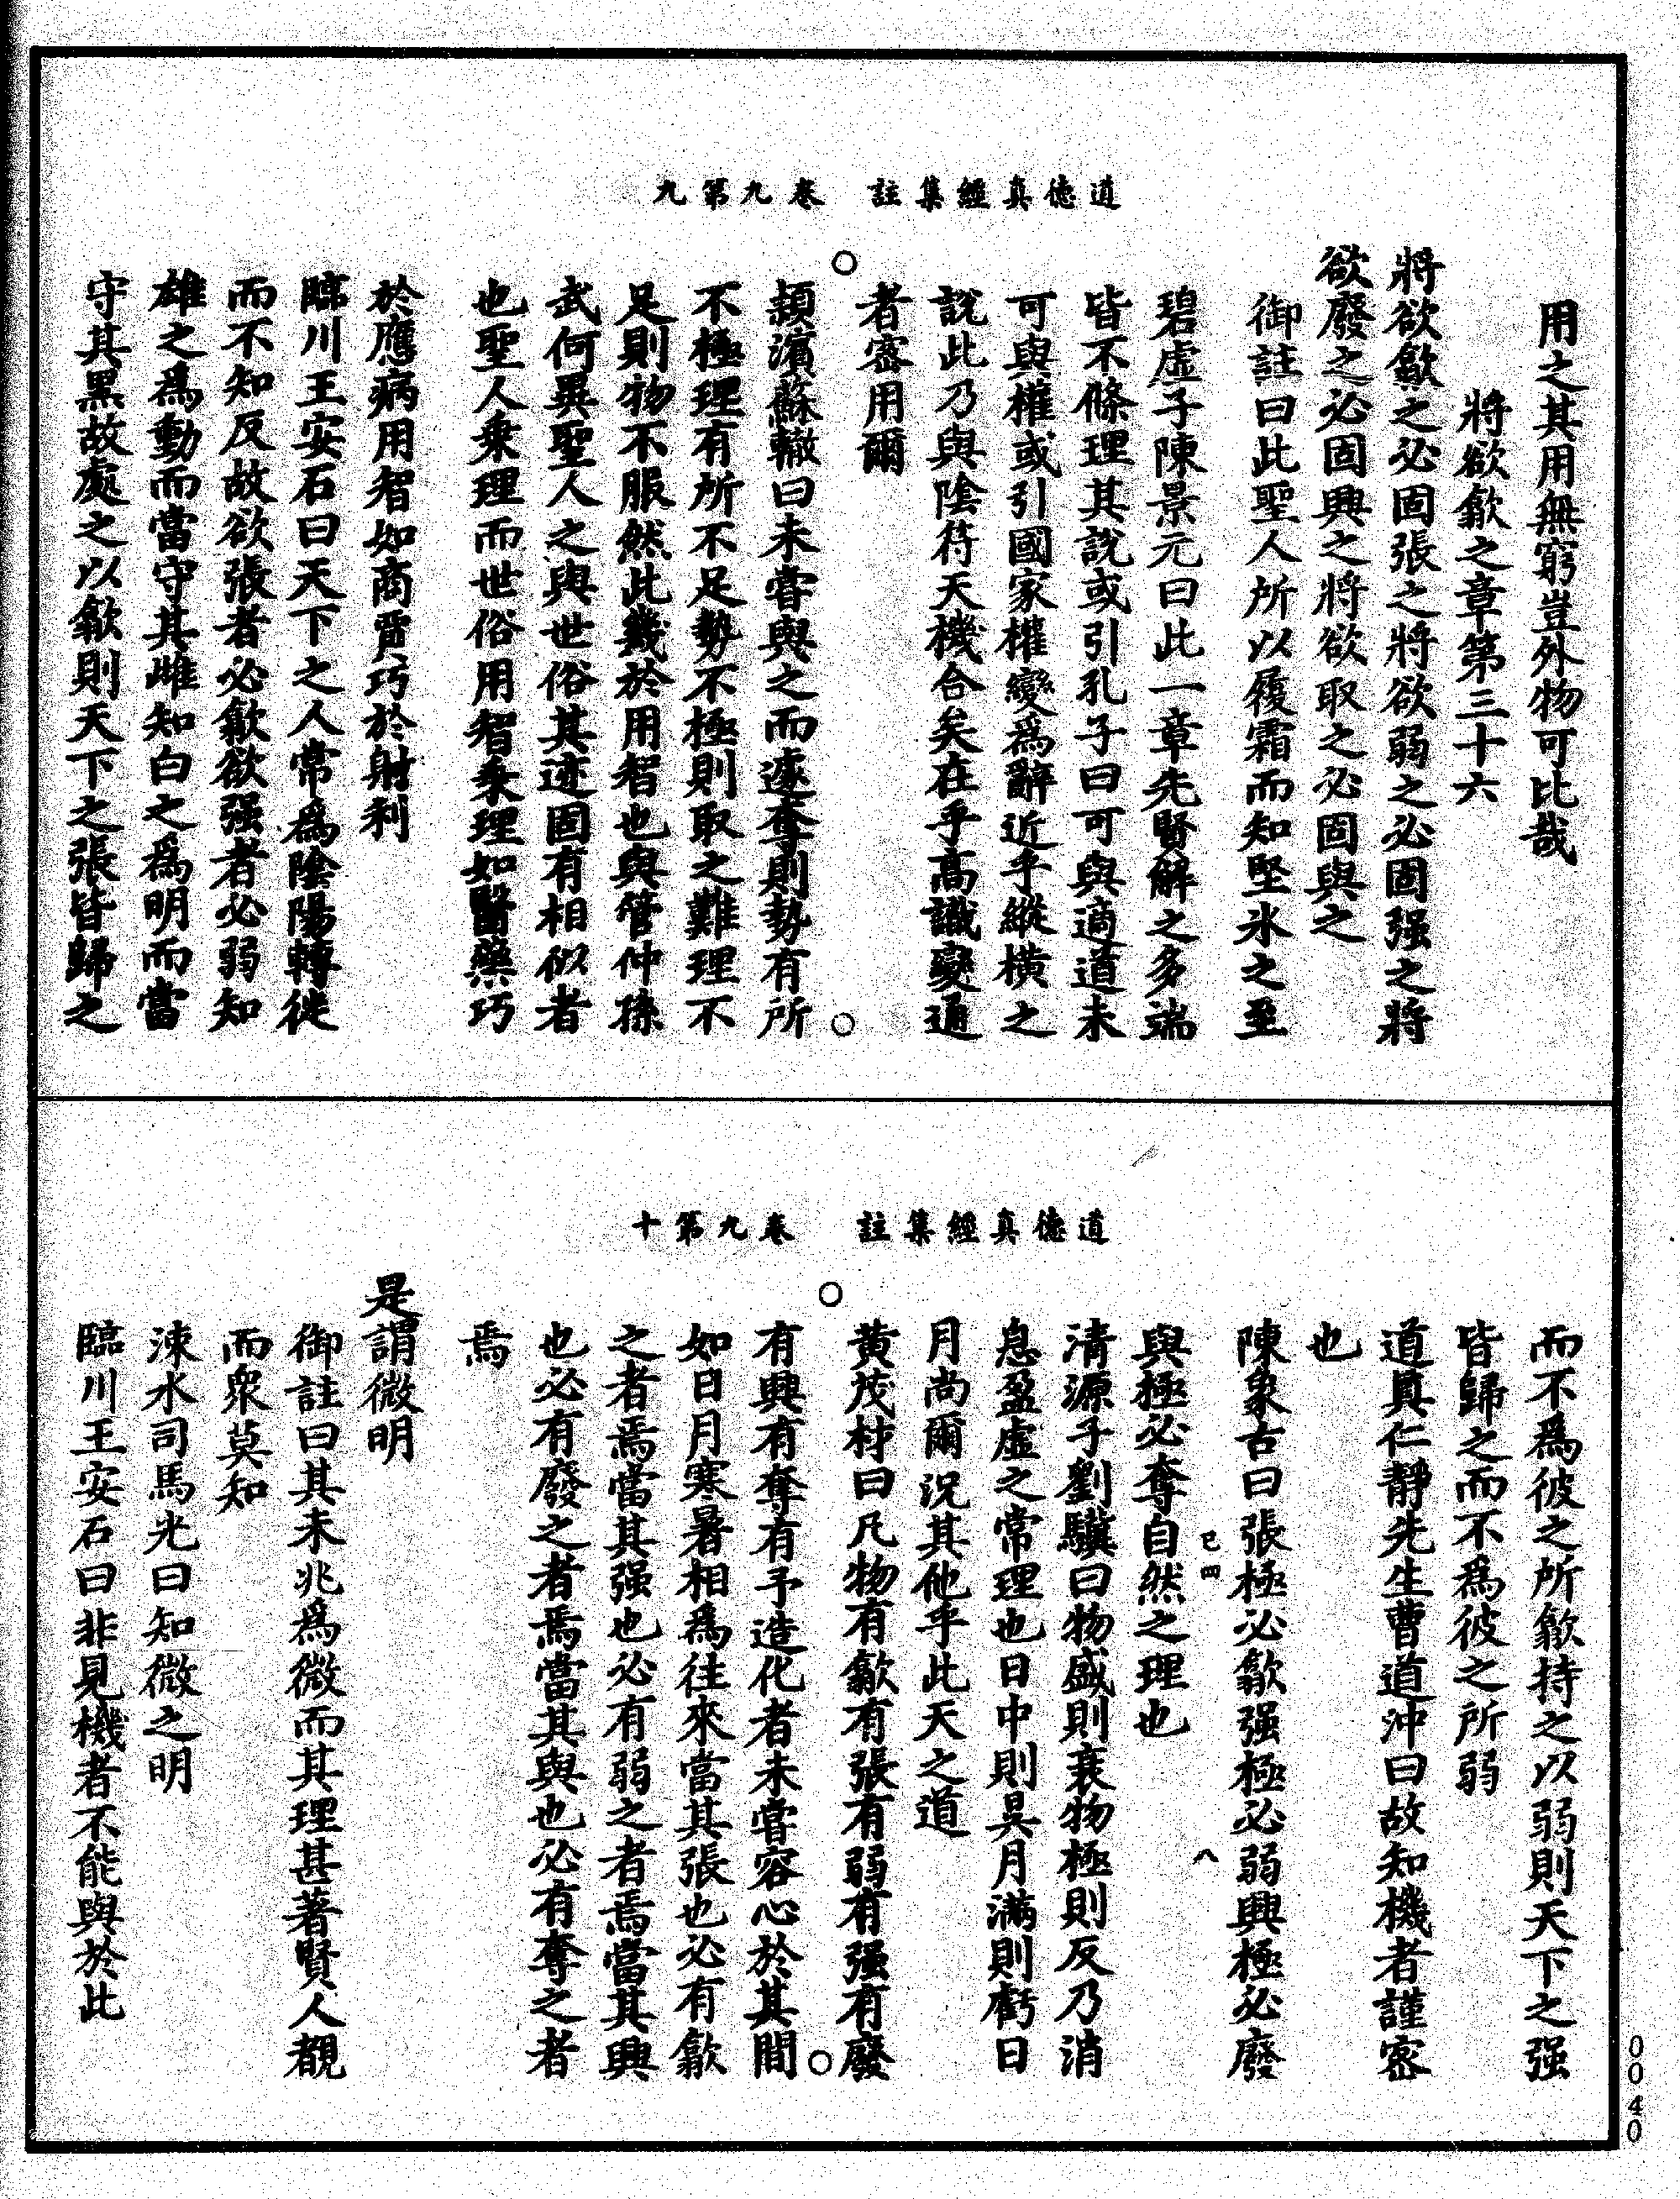 道德真經集註　卷九第九
用之其用無窮豈外物可比哉
將欲歙之章第三十六
將欲歙之必固張之將欲弱之必固强之將
欲廢之必固興之將欲取之必固與之
御註曰此聖人所以履霜而知堅冰之至
碧虛子陳景元曰此一章先賢解之多端
皆不條理其說或引孔子曰可與適道未
可與權或引國家權變爲辭近乎縱橫之
說此乃與陰符天機合矣在乎高識變通
者密用爾
潁濱蘇轍曰未嘗與之而遽奪則勢有所
不極理有所不足勢不極則取之難理不
足則物不服然此幾於用智也與管仲孫
武何異聖人之與世俗其迹固有相似者
也聖人乘理而世俗用智乘理如醫藥巧
於應病用智如商賈巧於射利
臨川王安石曰天下之人常爲陰陽轉徙
而不知反故欲張者必歙欲强者必弱知
雄之爲動而當守其雌知白之爲明而當
守其黑故處之以歙則天下之張皆歸之
道德真經集註　卷九第十
而不爲彼之所歙持之以弱則天下之强
皆歸之而不爲彼之所弱
道真仁靜先生曹道沖曰故知機者謹密
也
陳象古曰張極必歙强極必弱興極必廢
已四　八
與極必奪自然之理也
清源子劉驥曰物盛則衰物極則反乃消
息盈虛之常理也日中則昃月滿則虧日
月尚爾況其他乎此天之道
黃茂材曰凡物有歙有張有弱有强有廢
有興有奪有予造化者未嘗容心於其間
如日月寒暑相爲往來當其張也必有歙
之者焉當其强也必有弱之者焉當其興
也必有廢之者焉當其與也必有奪之者
焉
是謂微明
御註曰其未兆爲微而其理甚著賢人覩
而衆莫知
涑水司馬光曰知微之明
臨川王安石曰非見機者不能與於此
0040